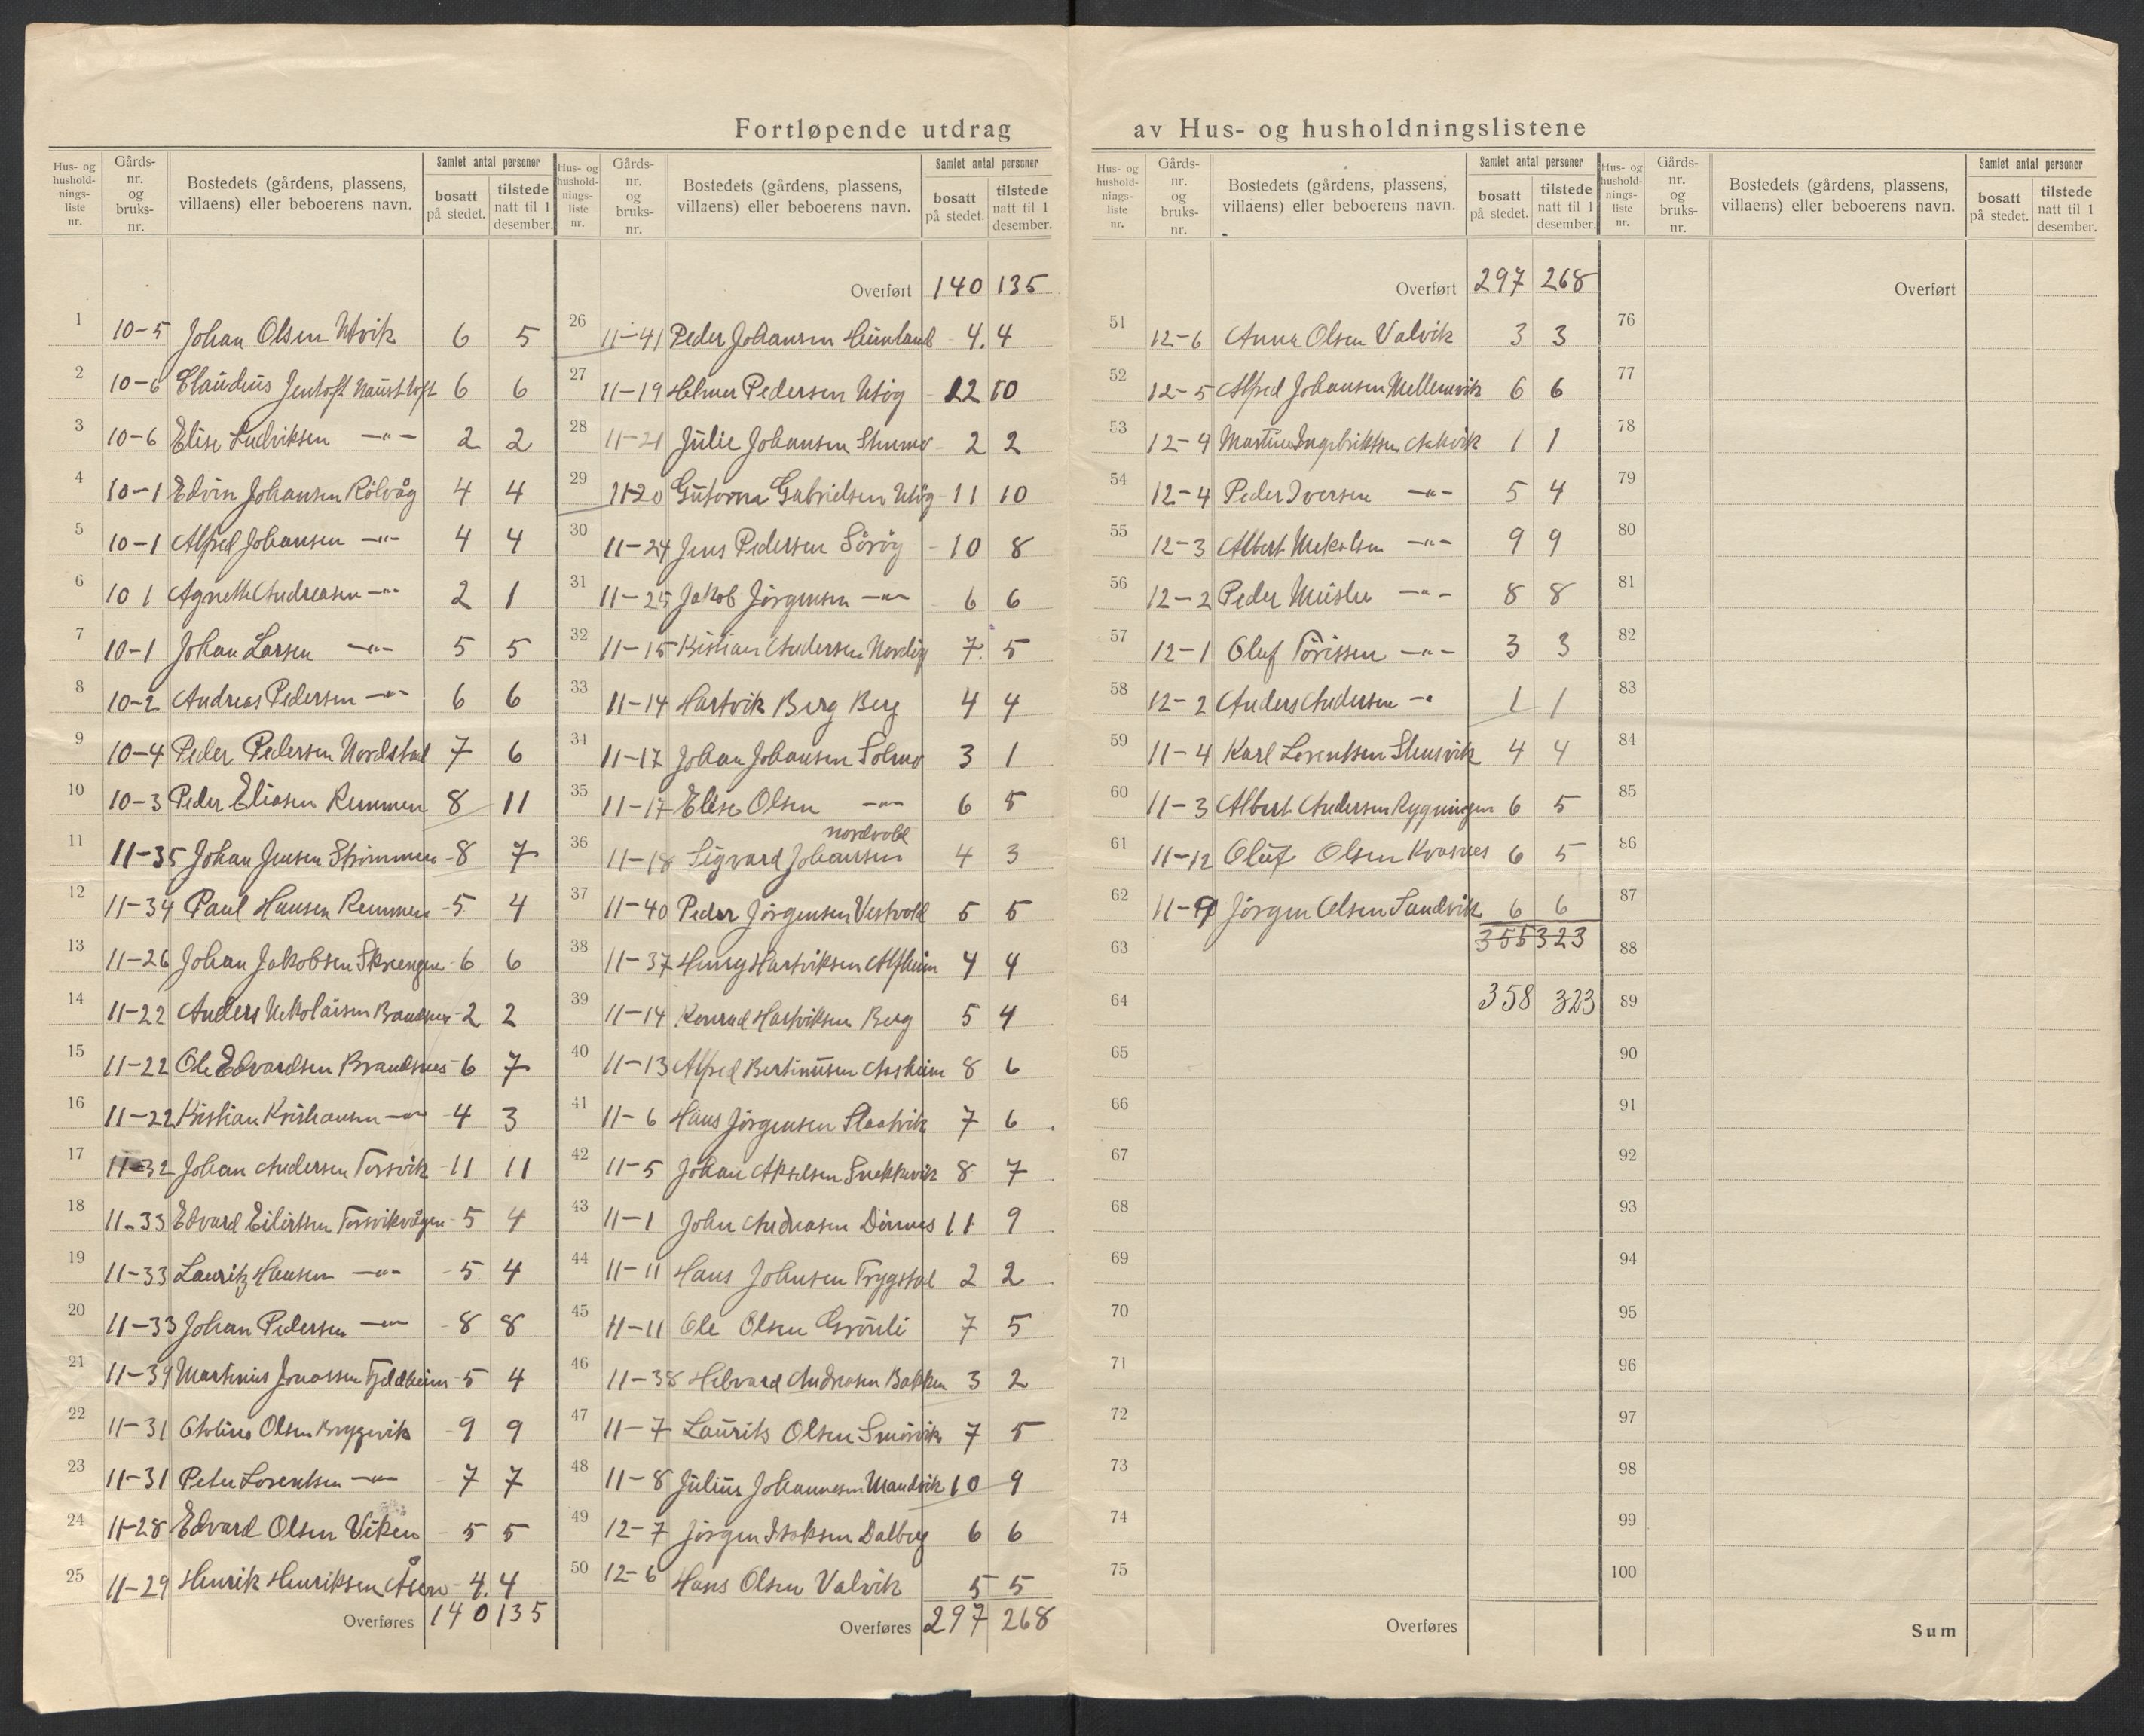 Fortløpende utdrag av Hus- og husholdningslistene
Hus- og husholdnings-liste nr. | Gårds-nr. og bruks-nr. | Bostedets (gårdens, plassens, villaens) eller beboerens navn. | Samlet antal personer | bosatt på stedet. | tilstede natt til 1 desember.
1 10-5 Johan Olsen Utvik 6 5
2 10-6 Claudius Jentoft Nausttoft 6 6
3 10-6 Elise Ludviksen —"— 2 2
4 10-1 Edvin Johansen Rölvåg 4 4
5 10-1 Alfred Johansen —"— 4 4
6 10 1 Agnethe Andreasen —"— 2 1
7 10-1 Johan Larsen —"— 5 5
8 10-2 Andreas Pedersen —"— 6 6
9 10-4 Peder Pedersen Nordstad 7 6
10 10-3 Peder Eliasen Remmen 8 11
11 11-35 Johan Jensen Strömmen 8 7
12 11-34 Paul Hansen Remmen 5 4
13 11-26 Johan Jakobsen 6 6
14 11-22 Anders Nikolaisen 2 2
15 11-22 Ole Edvardsen Brandsnes 6 7
16 11-22 Kristian Kristiansen —"— 4 3
17 11-32 Johan Andersen Torsvik 11 11
18 11-33 Edvard Eilertsen Torsvikvågen 5 4
19 11-33 Lauritz Hansen —"— 5 4
20 11-33 Johan Pedersen —"— 8 8
21 11-39 Martinius Jonassen Fjeldheim 5 4
22 11-31 Olsen Bryggvik 9 9
23 11-31 Peter Lorentsen —"— 7 7
24 11-28 Edvard Olsen Viken 5 5
25 11-29 Henrik Henriksen Åsen 4 4
Overføres 140 135
Hus- og husholdnings-liste nr. | Gårds-nr. og bruks-nr. | Bostedets (gårdens, plassens, villaens) eller beboerens navn. | Samlet antal personer | bosatt på stedet. | tilstede natt til 1 desember.
Overført 140 135
26 11-41 Peder Johansen Heimland 4. 4
27 11-19 Helmer Pedersen Utög 12 10
28 11-21 Julie Johansen 2 2
29 11-20 Gutorm Gabrielsen Utög 11 10
30 11-24 Jens Pedersen Sörög 10 8
31 11-25 Jakob Jörgensen —"— 6 6
32 11-15 Kristian Andersen Nordög 7. 5
33 11-14 Hartvik Berg Berg 4 4
34 11-17 Johan Johansen Solmo 3 1
35 11-17 Elise Olsen —"— 6 5
36 11-18 Sigvard Johansen nordvold 4 3
37 11-40 Peder Jörgensen Vestvold 5 5
38 11-37 Henry Hartviksen Alfheim 4 4
39 11-14 Konrad Hartviksen Berg 5 4
40 11-13 Alfred Bertinusen Aasheim 8 6
41 11-6 Hans Jörgensen Slaatvik 7 6
42 11-5 Johan Akselsen Snekkevik 8 7
43 11-1 John Andreasen Dönnes 11 9
44 11-11 Hans Johnsen Trygstad 2 2
45 11-11 Ole Olsen Grönli 7 5
46 11-38 Andreasen Bakken 3 2
47 11-7 Laurits Olsen Smörvik 7 5
48 11-8 Julius Johannesen Mandvik 10 9
49 12-7 Jörgen Isaksen Dalberg 6 6
50 12-6 Hans Olsen Valvik 5 5
Overføres 297 268
Hus- og husholdnings-liste nr. | Gårds-nr. og bruks-nr. | Bostedets (gårdens, plassens, villaens) eller beboerens navn. | Samlet antal personer | bosatt på stedet. | tilstede natt til 1 desember.
Overført 297 268
51 12-6 Anna Olsen Valvik 3 3
52 12-5 Alfred Johansen Mellemvik 6 6
53 12-4 Martin Ingebriktsen Askvik 1 1
54 12-4 Peder Iversen —"— 5 4
55 12-3 Albert —"— 9 9
56 12-2 Peder —"— 8 8
57 12-1 Oluf Törissen —"— 3 3
58 12-2 Anders Andersen —" 1 1
59 11-4 Karl Lorentsen Stensvik 4 4
60 11-3 Albert Andersen Rygningen 6 5
61 11-12 Oluf Olsen Kvasnes 6 5
62 11-9 Jörgen Olsen Sandvik 6 6
63 355 323
64 358 323
65
66
67
68
69
70
71
72
73
74
75
Overføres
Hus- og husholdnings-liste nr. | Gårds-nr. og bruks-nr. | Bostedets (gårdens, plassens, villaens) eller beboerens navn. | Samlet antal personer | bosatt på stedet. | tilstede natt til 1 desember.
Overført
76
77
78
79
80
81
82
83
84
85
86
87
88
89
90
91
92
93
94
95
96
97
98
99
100
Sum